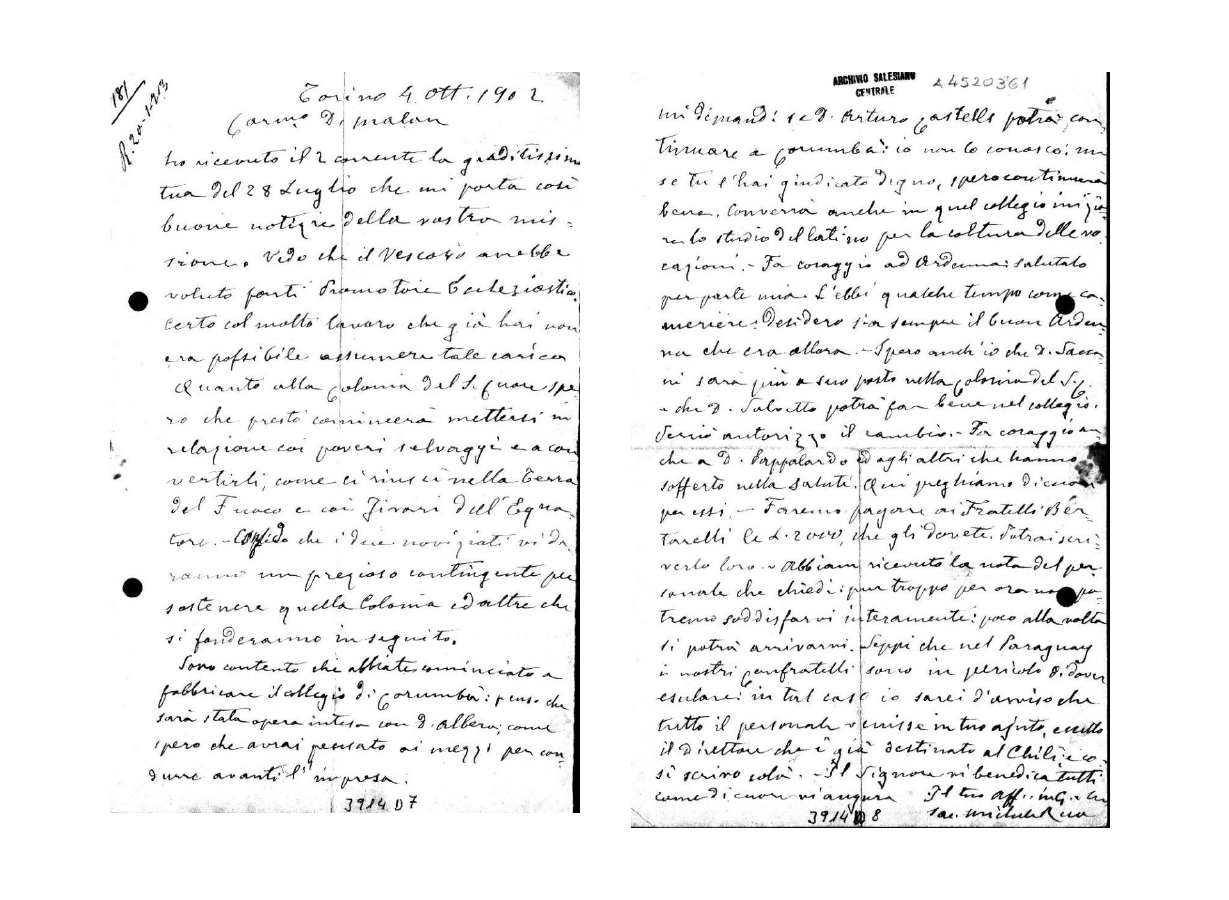 181
R. 20-1-903
Torino 4. Ott. 1902
Carmo D. Malan
ho ricevuto il 2 corrente la graditissima
tua del 28 Luglio che mi porta così
buone notizie della vostra mis-
sione. Vedo che il Vescovo avrebbe
voluto farti Promotore Ecclesiastico.
certo col molto lavoro che già hai non
era possibile assumere tale carica
Quanto alla Colonia del S. Cuore spe
ro che presto comincerà mettersi in
relazione coi poveri selvaggi e a con
vertirli, come ci riuscì nella Terra
del Fuoco e coi Jivari dell'Equa-
tore. - Confido che i due noviziati vi da-
ranno un prezioso contingente per
sostenere quella Colonia ed altre che
si fonderanno in seguito.
Sono contento che abbiate cominciato a
fabbricare il collegio di Corumbà: penso che
sarà stata opera intesa con D. Albera; come
spero che avrai pensato ai mezzi per con-
durre avanti l'impresa.
3914 D7
ARCHIVIO SALESIANO
CENTRALE
A4520361
mi dimandi se D. Arturo Castells potrà con
tinuare a Corumbà: io non lo conosco: ma
se tu l'hai giudicato degno, spero continuerà
bene. Converrà anche in quel collegio inizia
re lo studio del latino per la coltura delle vo
cazioni. - Fa coraggio ad Ardenna: salutalo
per parte mia. L'ebbi qualche tempo come ca-
meriere: Desidero sia sempre il buon Arden-
na che era allora. - Spero anch'io che D. Sacca
ni sarà più a suo posto nella Colonia del S. C.
e che D. Salvetto potrà far bene nel collegio.
Perciò autorizzo il cambio. - Fa coraggio an
che a D. Pappalardo ed agli altri che hanno
sofferto nella salute. Qui preghiamo di cuore
per essi. - Faremo pagare ai Fratelli Ber-
tarelli le L. 2000, che gli dovete. Potrai scri-
verlo loro. - Abbiam ricevuto la nota del per-
sonale che chiedi: pur troppo per ora non po-
tremo soddisfarvi interamente: poco alla volta
si potrà arrivarvi. Seppi che nel Paraguay
i nostri confratelli sono in pericolo di dover
esulare: in tal caso io sarei d'avviso che
tutto il personale venisse in tuo ajuto, eccetto
il Direttore che è già destinato al Chilì e co-
sì scrivo colà. - Il Signore vi benedica tutti
come di cuore vi augura Il tuo aff. in G. e M.
Sac. Michele Rua
3914 D 8